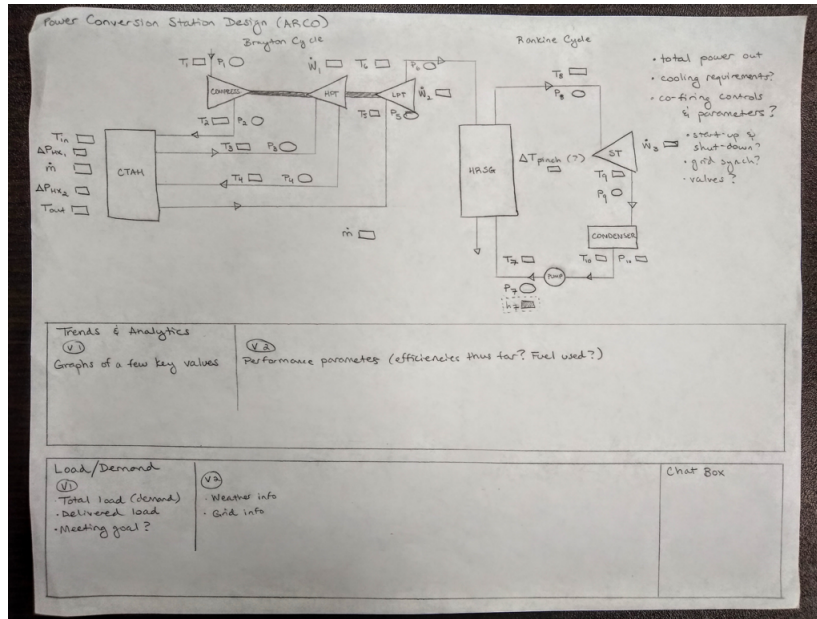 Power Conversion Station Design (ARCO)
Brayton Cycle
Rankine Cycle
T1 P1
Ẇ1 T6 P6
COMPRESS
HPT
LPT
Ẇ2
T2 P2
T5 P5
T3 P3
T4 P4
Tin
ΔPHX1
ṁ
ΔPHX2
Tout
CTAH
ṁ
T8
P8
HRSG
ΔTpinch (?)
ST
Ẇ3
T9
P9
CONDENSER
T10 P10
T7
PUMP
P7
h7
• total power out
• cooling requirements?
• co-firing controls
& parameters?
• start-up &
shut-down?
• grid synch?
• valves?
Trends & Analytics
V1
Graphs of a few key values
V2
Performance parametes (efficiencies thus far? Fuel used?)
Load/Demand
V1
• Total load (demand)
• Delivered load
• Meeting goal?
V2
• Weather info
• Grid info
Chat Box